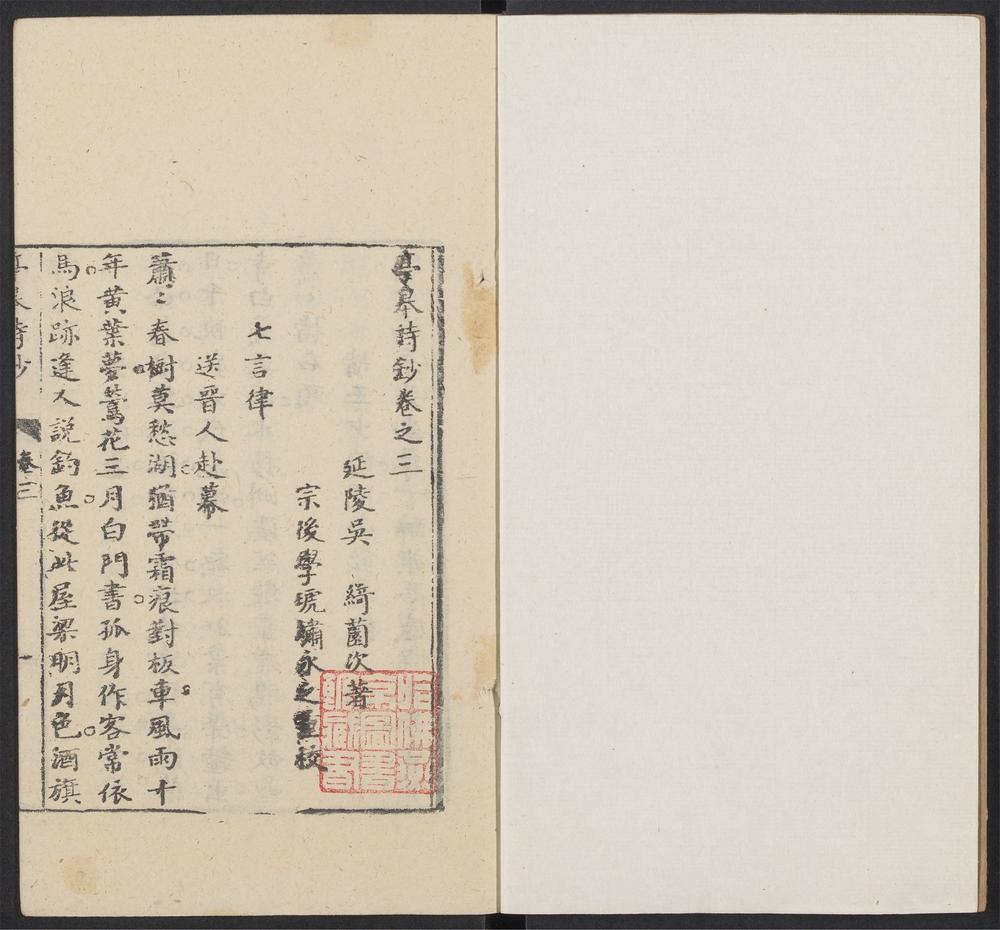 亭皋詩鈔卷之三
延陵吳 綺薗次著
宗後學琥繡永之重校
七言律
送晋人赴幕
蕭〻春樹莫愁湖猶帶霜痕對板車風雨十
年黄葉夢鶯花三月白門書孤身作客常依
馬浪跡逢人説釣魚從此屋梁明月色酒旗
亭皋詩鈔 卷三 一